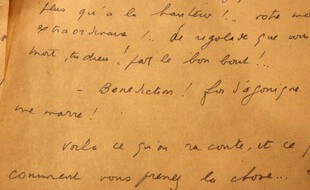 plus qu'à la hauteur !.. votre mo
extraordinaire !.. de regolade que vous
mort, tudieu ! par le bon bout !..
- Benediction ! foi d'agonique
me marre !
Voilà ce qu'on raconte, et ce q
comment vous prenez la chose...